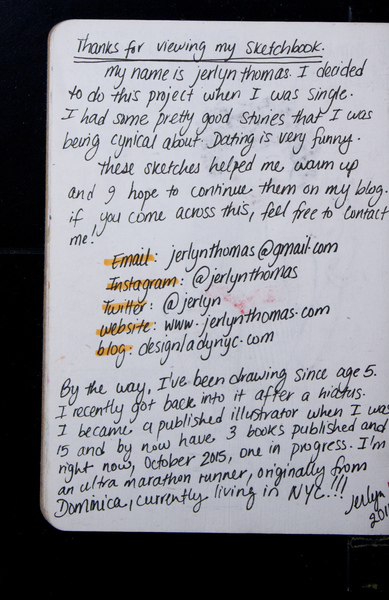 Thanks for viewing my sketchbook.
My name is jerlyn thomas. I decided
to do this project when I was single.
I had some pretty good stories that I was
being cynical about. Dating is very funny.
These sketches helped me warm up
and I hope to continue them on my blog.
if you come across this, feel free to contact
me!
Email: jerlynthomas@gmail.com
Instagram: @jerlynthomas
Twitter: @jerlyn
website: www.jerlynthomas.com
blog: designladynyc.com
By the way, I've been drawing since age 5.
I recently got back into it after a hiatus.
I became a published illustrator when I was
15 and by now have 3 books published and
right now, October 2015, one in progress. I'm
an ultra marathon runner, originally from
Dominica, currently living in NYC!!!
Jerlyn